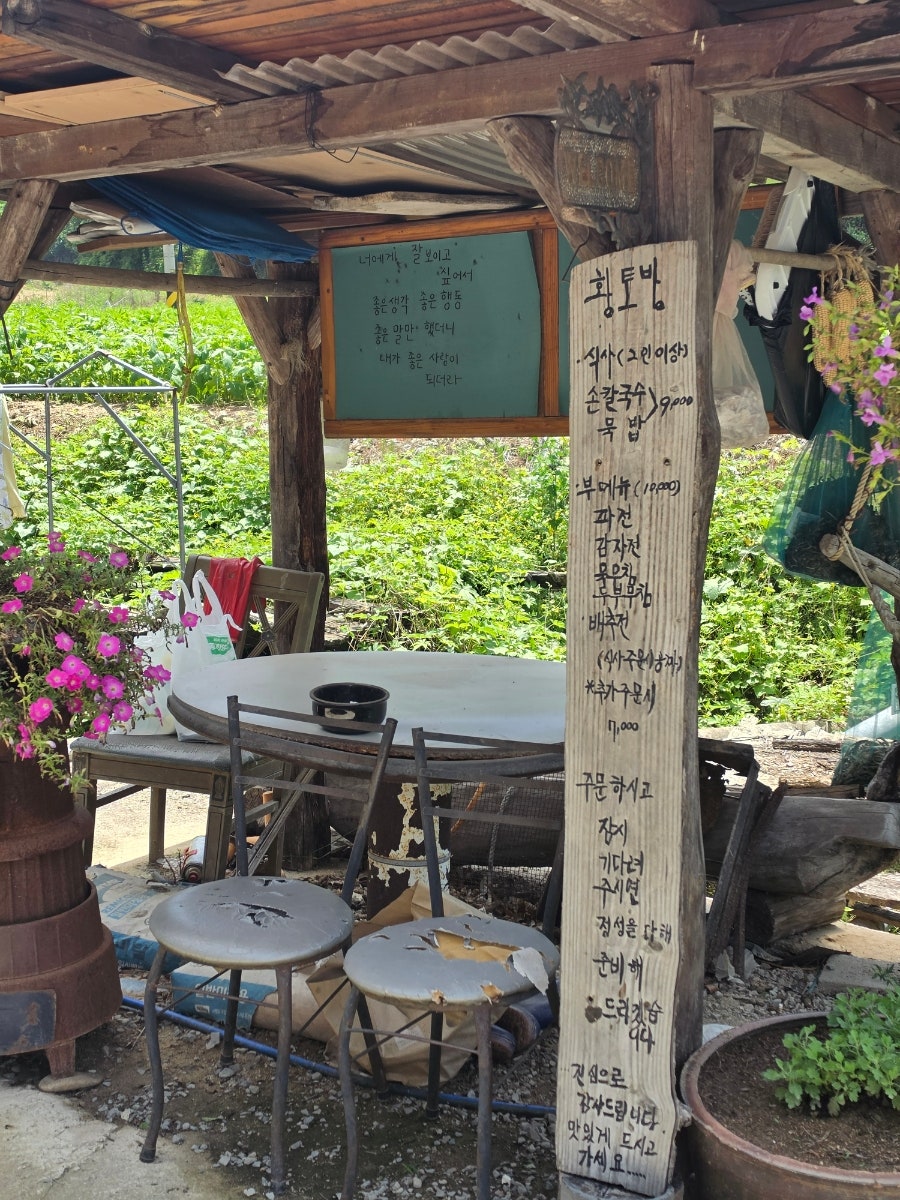 너에게 잘보이고
싶어서
좋은생각 좋은 행동
좋은 말만 했더니
내가 좋은 사람이
되더라
황토방
·식사(2인이상)
손칼국수
묵밥
9,000
·부메뉴(10,000)
파전
감자전
묵무침
두부무침
배추전
(식사주문시가능)
*추가주문시
7,000
주문하시고
잠시
기다려
주시면
정성을 다해
준비해
드리겠습
니다
진심으로
감사드립니다.
맛있게 드시고
가세요.....